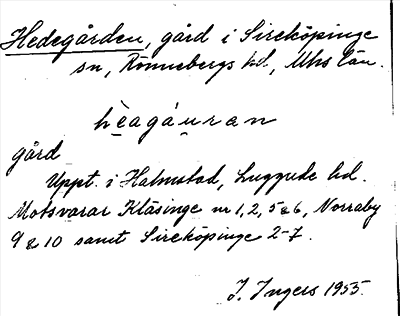 Hedegården, gård i Sireköpinge
sn, Rönnebergs hd., Mhs län.
hèagáuran
gård
Uppt. i Halmstad, Luggude hd.
Motsvarar Kläsinge nr 1, 2, 5 & 6, Norraby
9 & 10 samt Sireköpinge 2-7.
I. Ingers 1955.